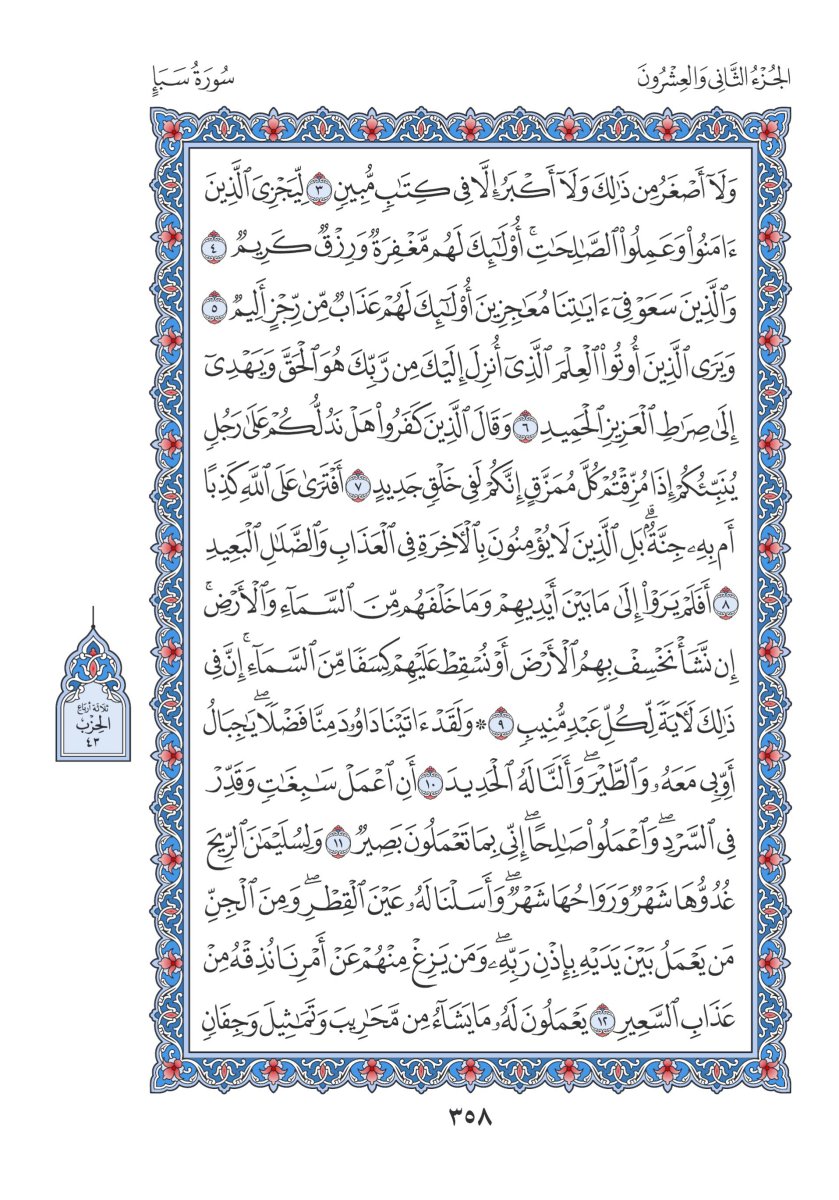 الجُزْءُ الثَّانِي وَالعِشْرُونَ
سُورَةُ سَبَإٍ
وَلَآ أَصْغَرُ مِن ذَٰلِكَ وَلَآ أَكْبَرُ إِلَّا فِى كِتَٰبٍ مُّبِينٍ ٣ لِّيَجْزِىَ ٱلَّذِينَ
ءَامَنُوا۟ وَعَمِلُوا۟ ٱلصَّٰلِحَٰتِ ۚ أُو۟لَٰٓئِكَ لَهُم مَّغْفِرَةٌ وَرِزْقٌ كَرِيمٌ ٤
وَٱلَّذِينَ سَعَوْ فِىٓ ءَايَٰتِنَا مُعَٰجِزِينَ أُو۟لَٰٓئِكَ لَهُمْ عَذَابٌ مِّن رِّجْزٍ أَلِيمٌ ٥
وَيَرَى ٱلَّذِينَ أُوتُوا۟ ٱلْعِلْمَ ٱلَّذِىٓ أُنزِلَ إِلَيْكَ مِن رَّبِّكَ هُوَ ٱلْحَقَّ وَيَهْدِىٓ
إِلَىٰ صِرَٰطِ ٱلْعَزِيزِ ٱلْحَمِيدِ ٦ وَقَالَ ٱلَّذِينَ كَفَرُوا۟ هَلْ نَدُلُّكُمْ عَلَىٰ رَجُلٍ
يُنَبِّئُكُمْ إِذَا مُزِّقْتُمْ كُلَّ مُمَزَّقٍ إِنَّكُمْ لَفِى خَلْقٍ جَدِيدٍ ٧ أَفْتَرَىٰ عَلَى ٱللَّهِ كَذِبًا
أَم بِهِۦ جِنَّةٌۢ ۗ بَلِ ٱلَّذِينَ لَا يُؤْمِنُونَ بِٱلْءَاخِرَةِ فِى ٱلْعَذَابِ وَٱلضَّلَٰلِ ٱلْبَعِيدِ
٨ أَفَلَمْ يَرَوْا۟ إِلَىٰ مَا بَيْنَ أَيْدِيهِمْ وَمَا خَلْفَهُم مِّنَ ٱلسَّمَآءِ وَٱلْأَرْضِ ۚ
إِن نَّشَأْ نَخْسِفْ بِهِمُ ٱلْأَرْضَ أَوْ نُسْقِطْ عَلَيْهِمْ كِسَفًا مِّنَ ٱلسَّمَآءِ ۚ إِنَّ فِى
ذَٰلِكَ لَءَايَةً لِّكُلِّ عَبْدٍ مُّنِيبٍ ٩ ۞ وَلَقَدْ ءَاتَيْنَا دَاوُۥدَ مِنَّا فَضْلًا ۖ يَٰجِبَالُ
أَوِّبِى مَعَهُۥ وَٱلطَّيْرَ ۖ وَأَلَنَّا لَهُ ٱلْحَدِيدَ ١٠ أَنِ ٱعْمَلْ سَٰبِغَٰتٍ وَقَدِّرْ
فِى ٱلسَّرْدِ ۖ وَٱعْمَلُوا۟ صَٰلِحًا ۖ إِنِّى بِمَا تَعْمَلُونَ بَصِيرٌ ١١ وَلِسُلَيْمَٰنَ ٱلرِّيحَ
غُدُوُّهَا شَهْرٌ وَرَوَاحُهَا شَهْرٌ ۖ وَأَسَلْنَا لَهُۥ عَيْنَ ٱلْقِطْرِ ۖ وَمِنَ ٱلْجِنِّ
مَن يَعْمَلُ بَيْنَ يَدَيْهِ بِإِذْنِ رَبِّهِۦ ۖ وَمَن يَزِغْ مِنْهُمْ عَنْ أَمْرِنَا نُذِقْهُ مِنْ
عَذَابِ ٱلسَّعِيرِ ١٢ يَعْمَلُونَ لَهُۥ مَا يَشَآءُ مِن مَّحَٰرِيبَ وَتَمَٰثِيلَ وَجِفَانٍ
ثلاثة أرباع
الحِزْب
٤٣
٣٥٨